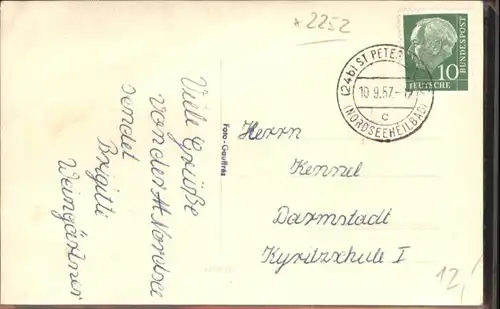 x 2252
(24b) ST PETER
10.9.57.-1
c
(NORDSEEHEILBAD)
10
DEUTSCHE
BUNDESPOST
Viele Grüße
von der Nordsee
sendet
Brigitti
Weingärtner
Foto-Gauffrés
Herrn
Kennel
Darmstadt
Kyritzschule I
12,/